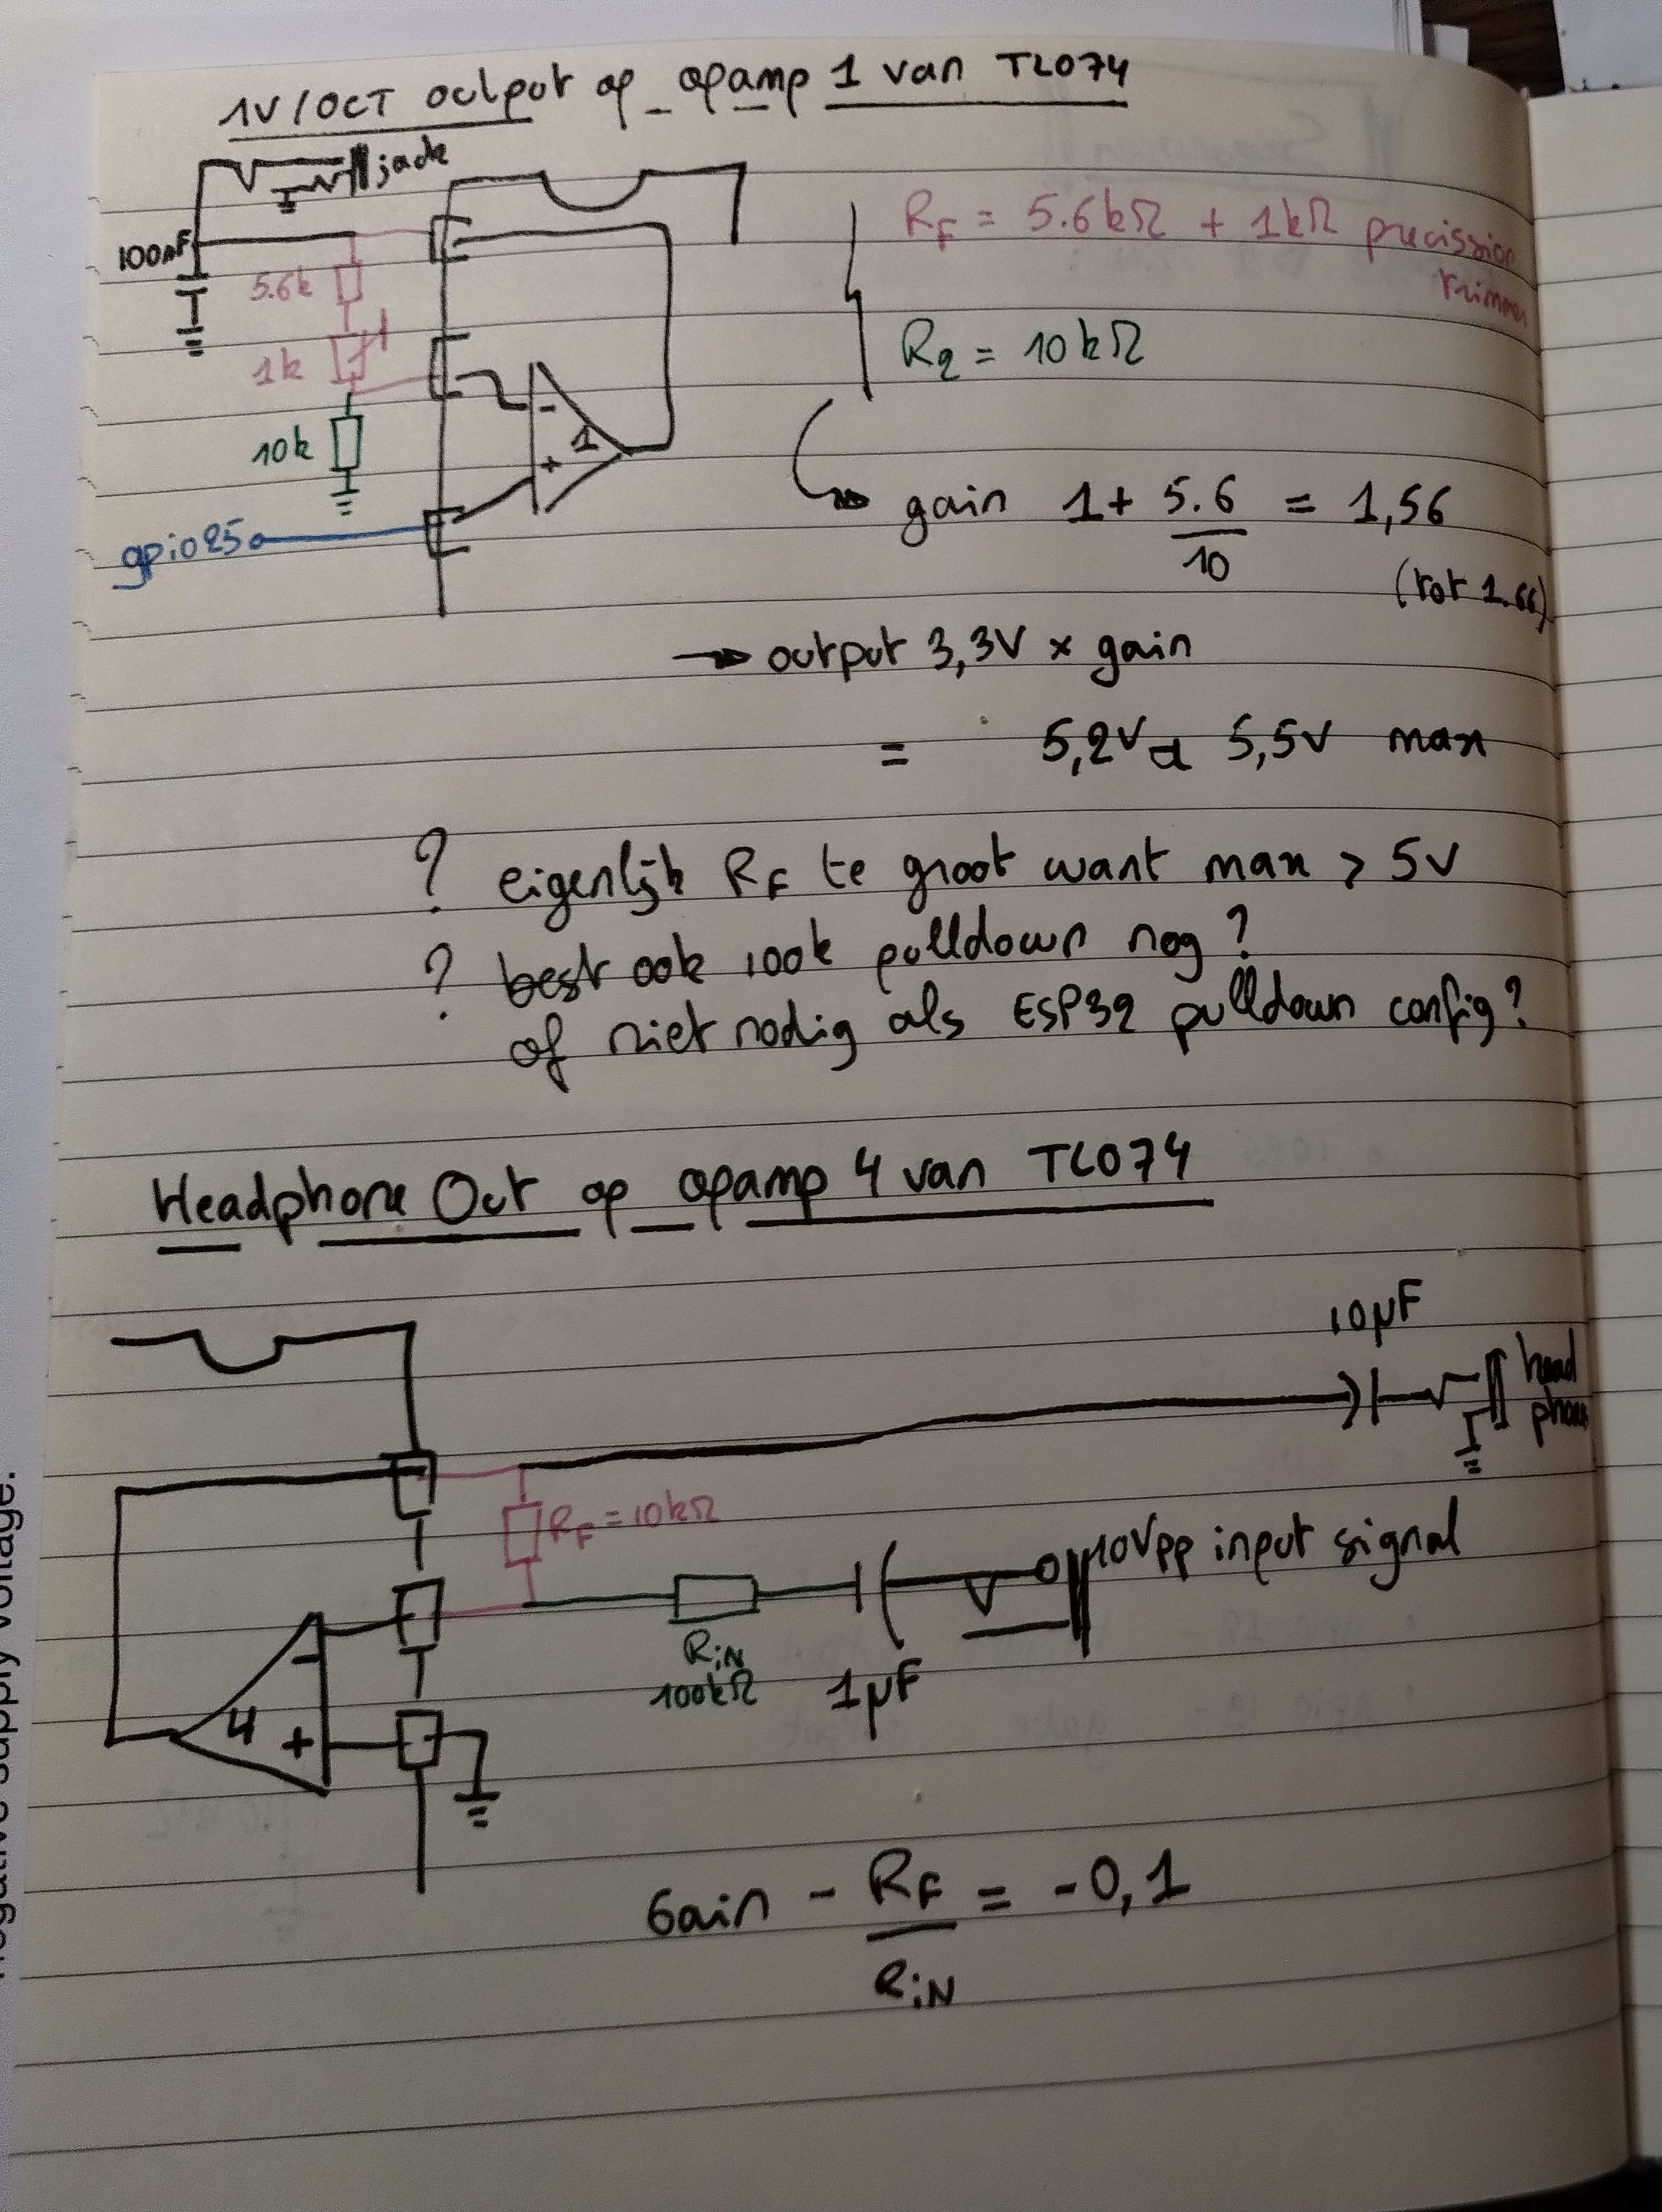 1V/OCT output op opamp 1 van TL074
jack
100nF
5.6k
1k
10k
gpio25
-
+
1
RF = 5.6kΩ + 1kΩ precission
trimmer
R2 = 10kΩ
gain 1 + 5.6 / 10 = 1,56
(tot 1.66)
→ output 3,3V × gain
= 5,2V à 5,5V max
? eigenlijk RF te groot want max > 5V
? best ook 100k pulldown nog?
of niet nodig als ESP32 pulldown config?
Headphone Out op opamp 4 van TL074
10µF
head
phone
RF = 10kΩ
10Vpp input signal
RiN
100kΩ
1µF
-
4
+
Gain - RF / RiN = -0,1
negative supply voltage.